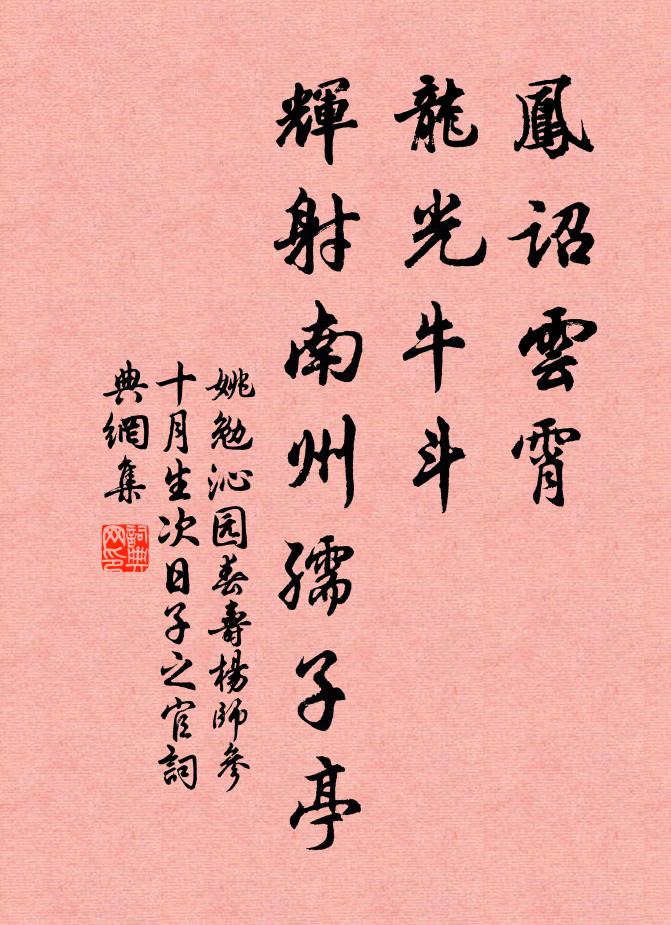 鳳詔雲霄
龍光牛斗
輝射南州孺子亭
姚勉沁园春壽楊師參
十月生次日子之官詞
典網集
詞典
网印